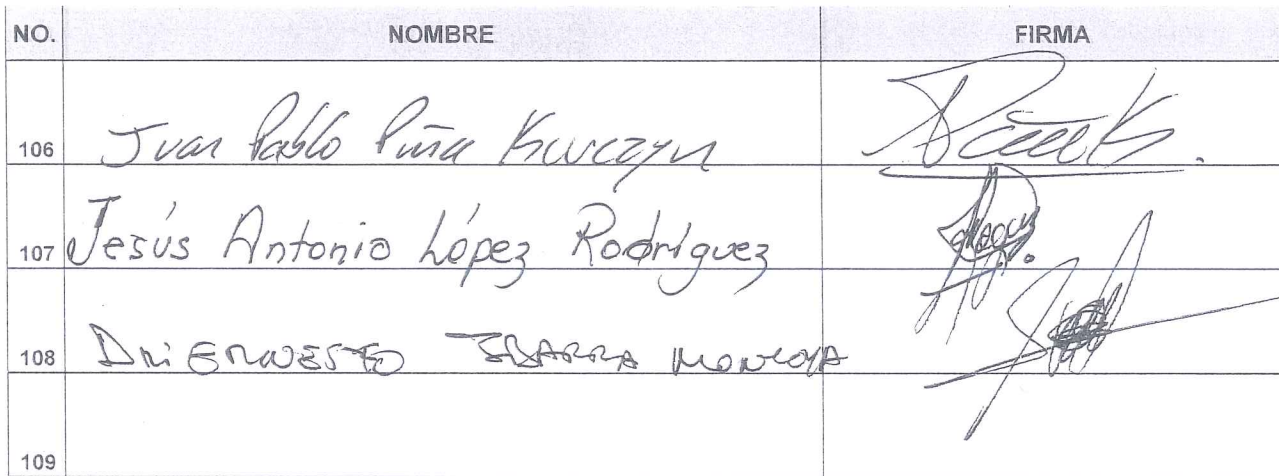 NO. NOMBRE FIRMA
106 Juan Pablo Piña Kurczyn
107 Jesús Antonio López Rodríguez
108 ERNESTO IBARRA MONTOYA
109